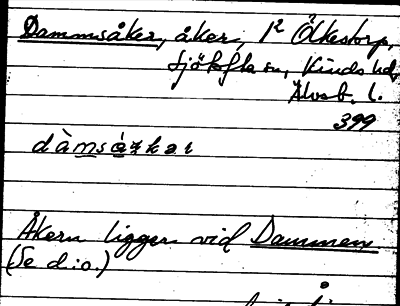 Dammsåker, åker, 1² Ölkestorp,
Kinds hd,
Älvsb. l.
399
Åkern ligger vid Dammen
(Se d.o.)